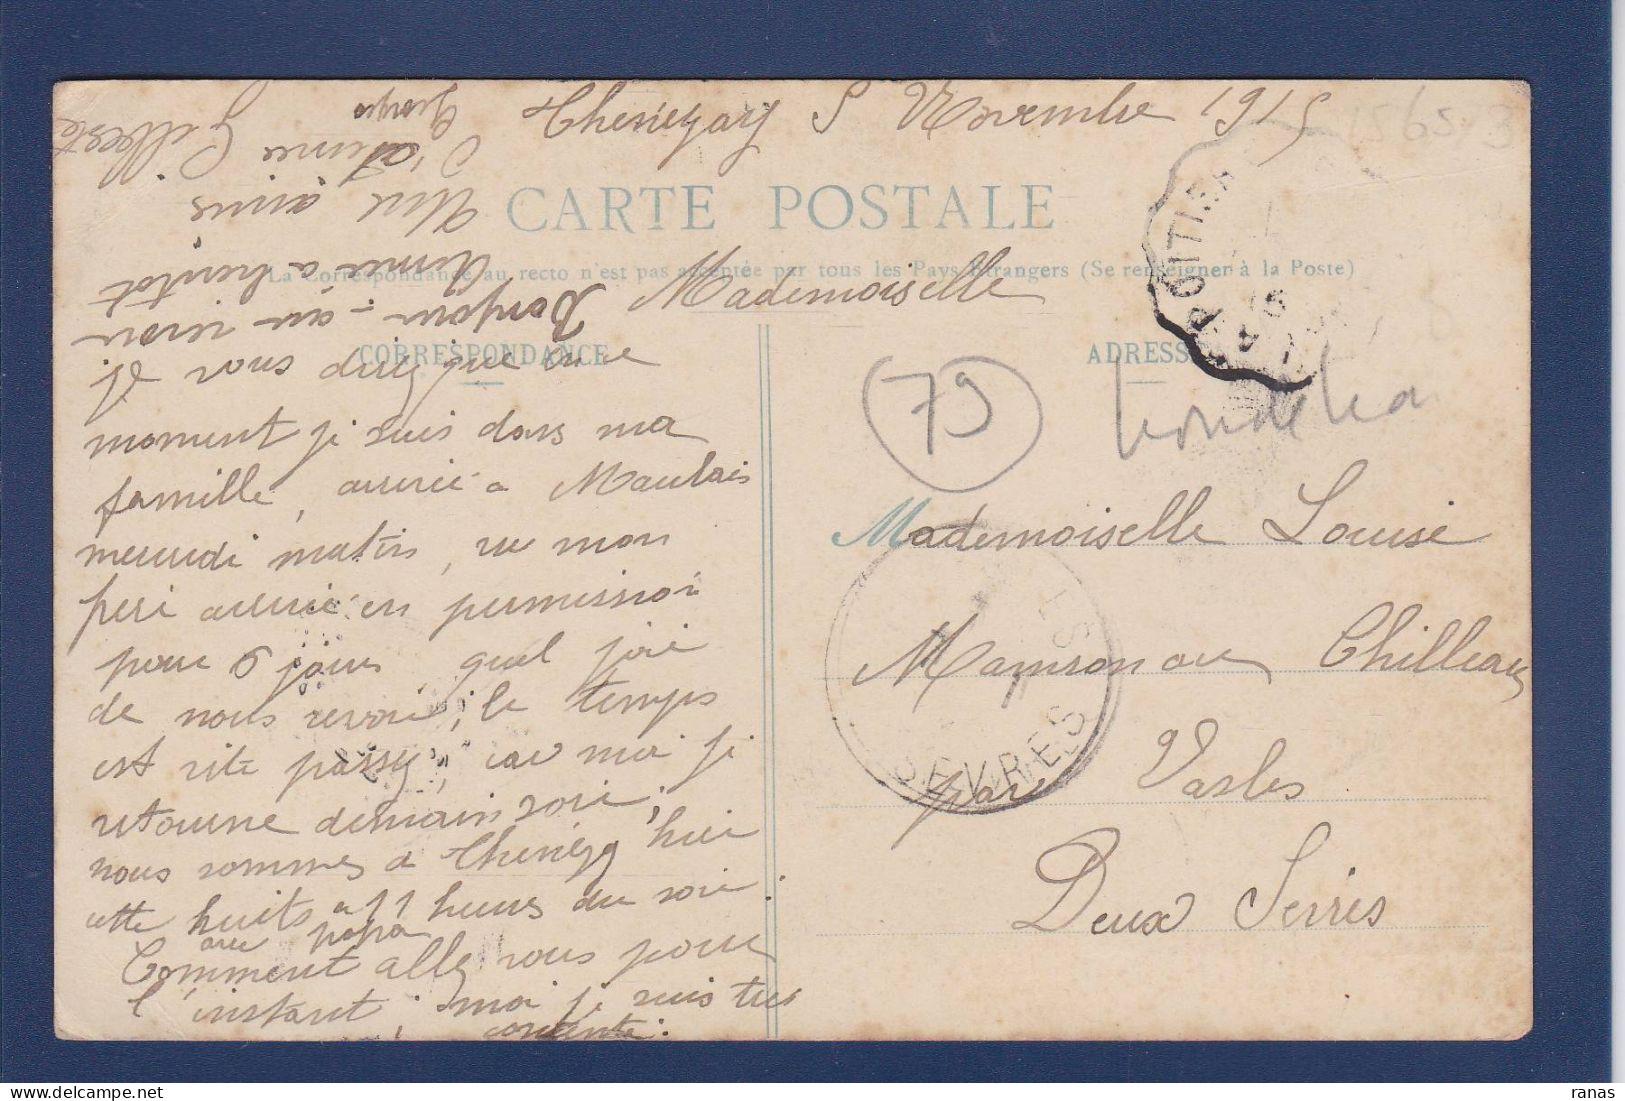 Thenezay 5 Novembre 1915
CARTE POSTALE
La Correspondance au recto n'est pas acceptée par tous les Pays Etrangers (Se renseigner à la Poste)
Mademoiselle
CORRESPONDANCE
ADRESSE
Je vous direz que en ce
moment je suis dans ma
famille, arrivée a Maulais
mercredi matin, vu mon
pere arrivé en permission
pour 6 jours quel joie
de nous revoir, le temps
est vite passez, car moi je
retourne demain soir,
nous sommes a Thenezay hier
cette huits a 11 heures du soir.
avec papa
Comment allez vous pour
l'instant, moi je suis tres
contente.
Bonjour - au revoir
a bientot
Une amis
d'amie Gilberte
79
Mademoiselle Louise
par Vasles
Deux Sevres
POITIERS
SEVRES
1565 3
ranas